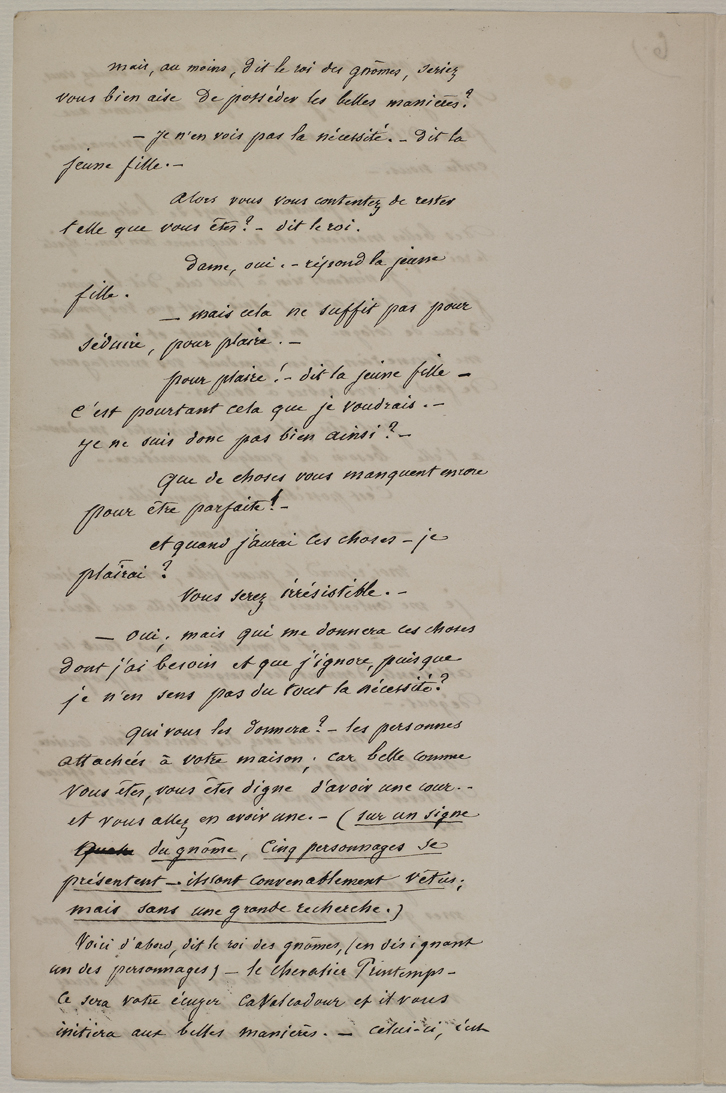 mais, au moins, dit le roi des gnômes, seriez
vous bien aise de posséder les belles manières?
— je n'en vois pas la nécessité. — dit la
jeune fille. —
alors vous vous contentez de rester
telle que vous êtes? — dit le roi.
dame, oui. — répond la jeune
fille.
— mais cela ne suffit pas pour
séduire, pour plaire. —
pour plaire! — dit la jeune fille —
c'est pourtant cela que je voudrais. —
je ne suis donc pas bien ainsi? —
que de choses vous manquent encore
pour être parfaite! —
et quand j'aurai ces choses — je
plairai?
vous serez irrésistible. —
— oui, mais qui me donnera ces choses
dont j'ai besoin et que j'ignore, puisque
je n'en sens pas du tout la nécessité?
qui vous les donnera? — les personnes
attachées à votre maison; car belle comme
vous êtes, vous êtes digne d'avoir une cour. —
et vous allez en avoir une. — (sur un signe
du gnôme, cinq personnages se
présentent — ils sont convenablement vêtus;
mais sans une grande recherche.)
Voici d'abord, dit le roi des gnômes, (en désignant
un des personnages) — le chevalier Printemps —
ce sera votre écuyer cavalcadour et il vous
initiera aux belles manières. — celui-ci, c'est